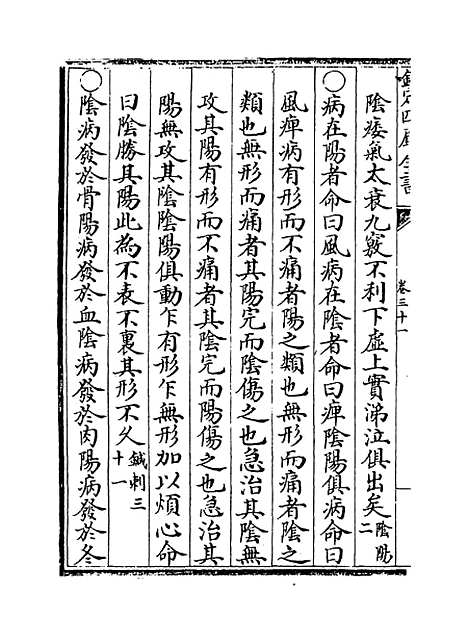 欽定四庫全書
卷三十一
陰痿氣太衰九竅不利下虛上實涕泣俱出矣陰陽二
○病在陽者命曰風病在陰者命曰痺陰陽俱病命曰
風痺病有形而不痛者陽之類也無形而痛者陰之
類也無形而痛者其陽完而陰傷之也急治其陰無
攻其陽有形而不痛者其陰完而陽傷之也急治其
陽無攻其陰陰陽俱動乍有形乍無形加以煩心命
曰陰勝其陽此為不表不裏其形不久鍼刺三十一
○陰病發於骨陽病發於血陰病發於肉陽病發於冬